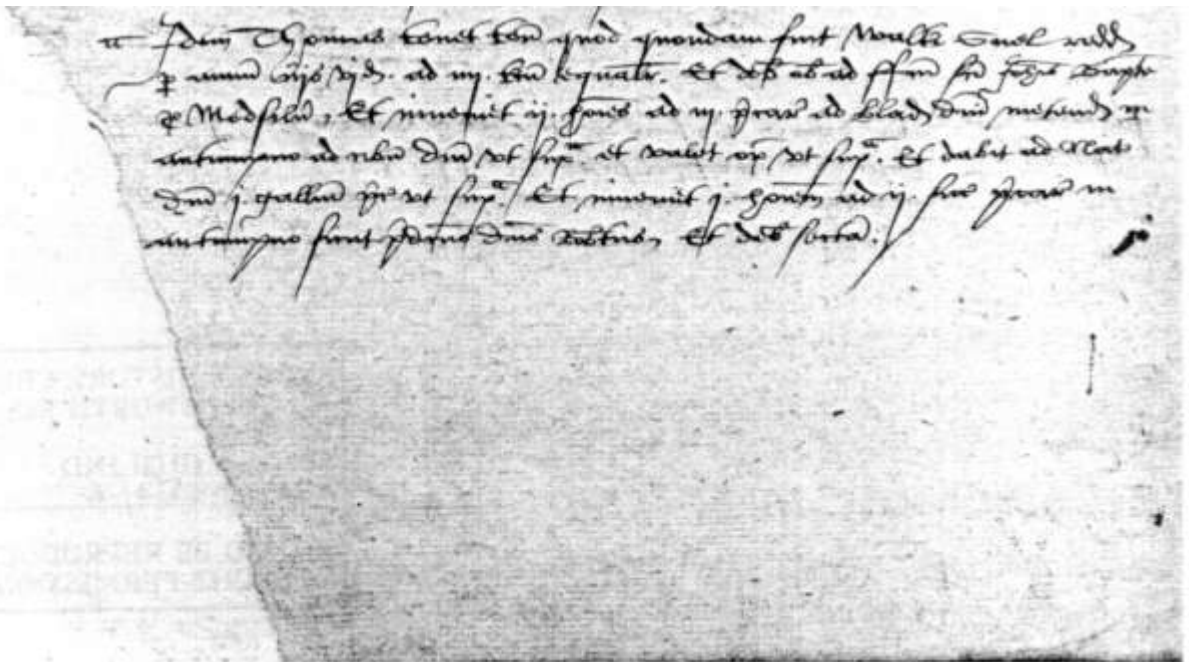 Idem Thomas tenet ten quod quondam fuit Walt Snel redd
p annu vijs vjd. ad iiij. tm equalr. Et deb ob ad ffm sci Johis Bapte
p Medsilu, Et inveniet ij. hoies ad iij. pcar ad blad dni metend in
autumpno ad cibu dni ut supa. et valet op ut supa. Et dabit ad lar
dni j. gallin pc ut supa. Et inveniet j. hoiem ad ij. sicc pcar in
autumpno sicut pdcus dns Robtus, Et deb secta.